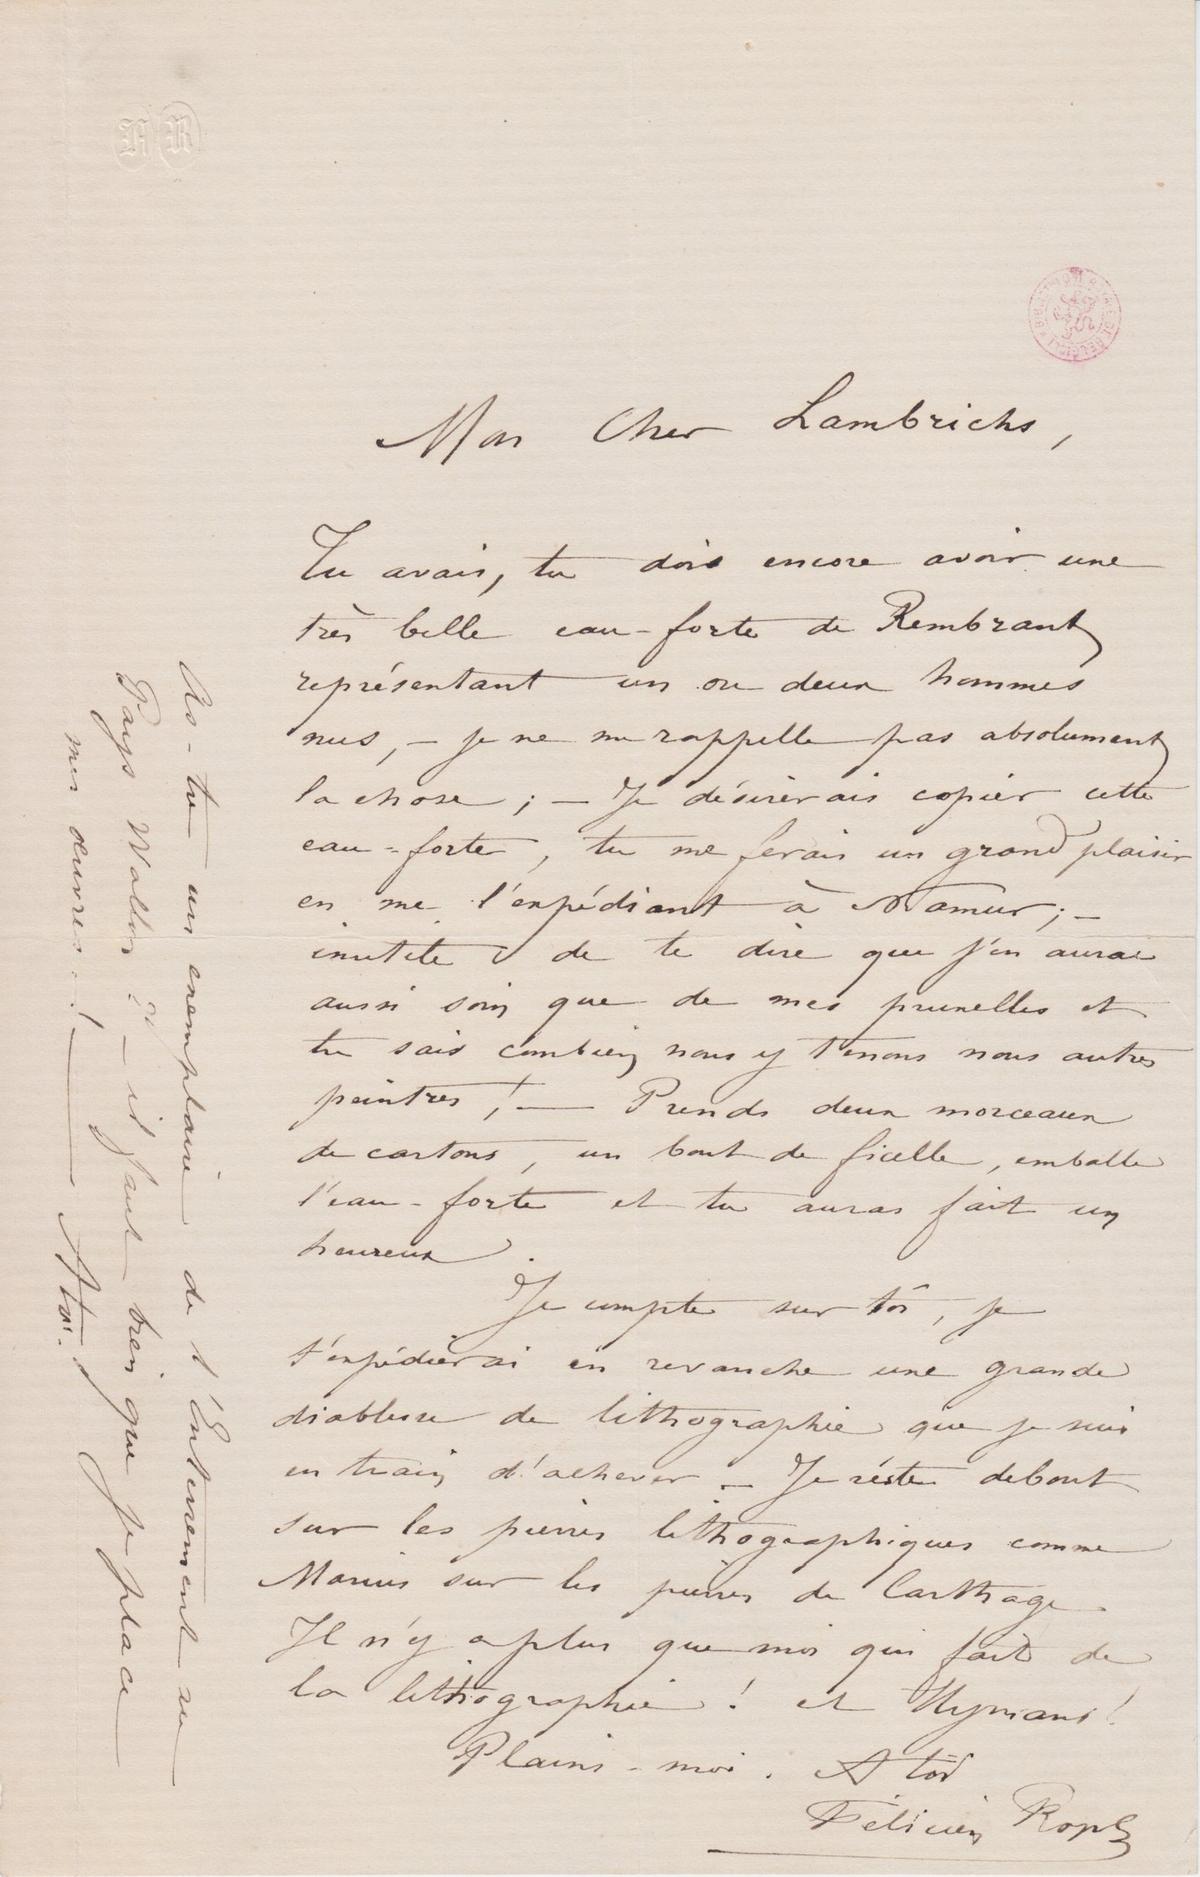 Mon Cher Lambrichs,
Tu avais, tu dois encore avoir une
très belle eau-forte de Rembrant
représentant un ou deux hommes
nus, – je ne me rappelle pas absolument
la chose ; – Je désirerais copier cette
eau-forte, tu me ferais un grand plaisir
en me l'expédiant à Namur ; –
inutile de te dire que j'en aurai
aussi soin que de mes prunelles et
tu sais combien nous y tenons nous autres
peintres ! — Prends deux morceaux
de cartons, un bout de ficelle, emballe
l'eau-forte et tu auras fait un
heureux.
Je compte sur toi, je
t'expédierai en revanche une grande
diablesse de lithographie que je suis
en train d'achever – Je réste debout
sur les pierres lithographiques comme
Marius sur les pierres de Carthage
Il n'y a plus que moi qui fait de
la lithographie ! et Hymans !
Plains-moi. A toi
Félicien Rops
As-tu un exemplaire de l'Enterrement au
Pays Wallon ? – il faut bien que je place
mes œuvres ! — A toi.